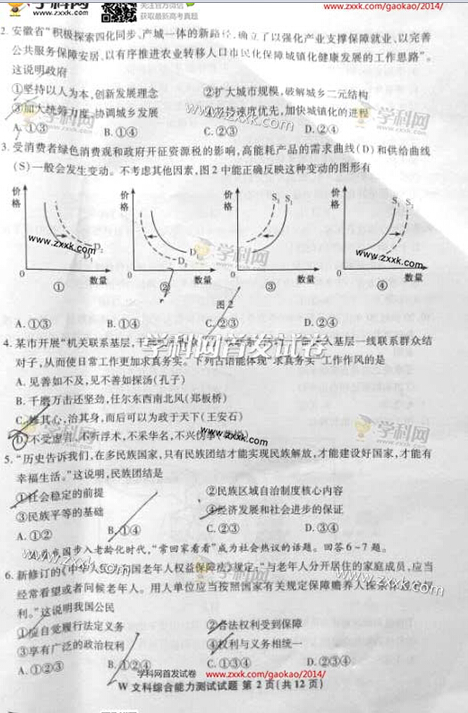 学科网
www.zxxk.com
关注官方微信
获取最新高考真题
www.zxxk.com/gaokao/2014/
2. 安徽省“积极探索四化同步、产城一体的新路径,确立了以强化产业支撑保障就业,以完善
公共服务保障安居,以有序推进农业转移人口市民化保障城镇化健康发展的工作思路”。
这说明政府
①坚持以人为本,创新发展理念 ②扩大城市规模,破解城乡二元结构
③加大统筹力度,协调城乡发展 ④坚持速度优先,加快城镇化的进程
A. ①③ B. ①④ C. ②③ D. ②④
3. 受消费者绿色消费观和政府开征资源税的影响,高能耗产品的需求曲线(D)和供给曲线
(S)一般会发生变动。不考虑其他因素,图2中能正确反映这种变动的图形有
价格 价格 价格 价格
D₁ D₂ D₁ D₂ S₂ S₁ S₁ S₂
0 数量 0 数量 0 数量 0 数量
① ② ③ ④
图2
www.zxxk.com
学科网
www.zxxk.com
A. ①③ B. ①④ C. ②③ D. ②④
学科网首发试卷
4. 某市开展“机关联系基层,干部
人基层一线联系群众结
对子,从而使日常工作更加求真务实。下列古语能体现“求真务实”工作作风的是
A. 见善如不及,见不善如探汤(孔子)
B. 千磨万击还坚劲,任尔东西南北风(郑板桥)
C. 修其心,治其身,而后可以为政于天下(王安石)
D. 不受虚言,不听浮术,不采华名,不兴伪事
5. “历史告诉我们,在多民族国家,只有民族团结才能实现民族解放,才能建设好国家,才能有
幸福生活。”这说明,民族团结是
①社会稳定的前提 ②民族区域自治制度核心内容
③民族平等的基础 ④经济发展和社会进步的保证
A. ①② B. ①④ C. ②③ D. ③④
随着我国步入老龄化时代,“常回家看看”成为社会热议的话题。回答6~7题。
6. 新修订的《中华人民共和国老年人权益保障法》规定:“与老年人分开居住的家庭成员,应当
经常看望或者问候老年人。用人单位应当按照国家有关规定保障赡养人探亲休假的权
利。”这说明我国公民
①应自觉履行法定义务 ②合法权利受到保障
③享有广泛的政治权利 ④权利与义务相统一
A. ①②③ B. ①②④ C. ①③④ D. ②③④
学科网首发试卷 www.zxxk.com/gaokao/2014/
W 文科综合能力测试试题 第 2 页(共 12 页)